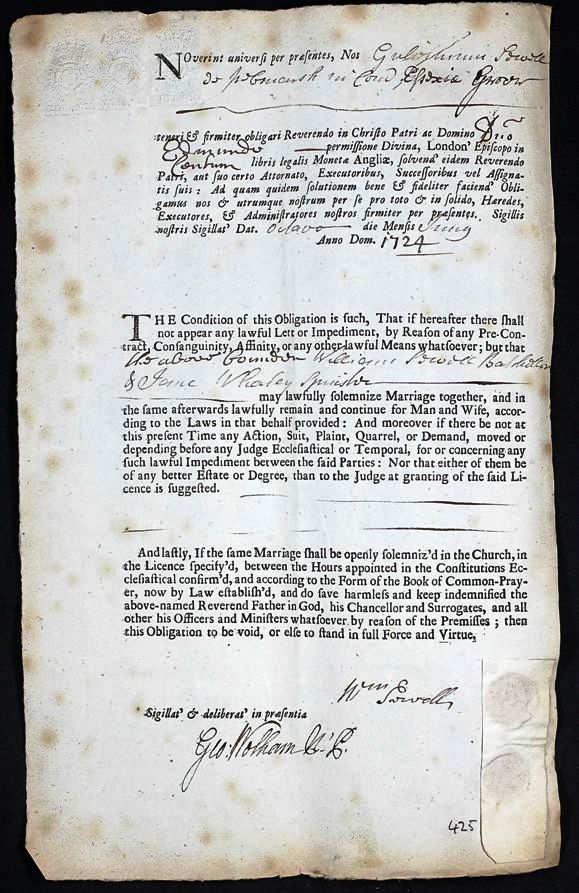 NOverint universi per præsentes, Nos Gulielmum Sewell
de Pebmarsh in Com Essexiæ Groom
teneri & firmiter obligari Reverendo in Christo Patri ac Domino Dno
Edmundo permissione Divina, London' Episcopo in
Centum libris legalis Monetæ Angliæ, solvend' eidem Reverendo
Patri, aut suo certo Attornato, Executoribus, Successoribus vel Assigna-
tis suis : Ad quam quidem solutionem bene & fideliter faciend' Obli-
gamus nos & utrumque nostrum per se pro toto & in solido, Hæredes,
Executores, & Administratores nostros firmiter per præsentes. Sigillis
nostris Sigillat' Dat. Octavo die Mensis Juny
Anno Dom. 1724
THE Condition of this Obligation is such, That if hereafter there shall
not appear any lawful Lett or Impediment, by Reason of any Pre-Con-
tract, Consanguinity, Affinity, or any other lawful Means whatsoever ; but that
the above bounden William Sewell Batchellor
& Jane Whaley Spinster
may lawfully solemnize Marriage together, and in
the same afterwards lawfully remain and continue for Man and Wife, accor-
ding to the Laws in that behalf provided : And moreover if there be not at
this present Time any Action, Suit, Plaint, Quarrel, or Demand, moved or
depending before any Judge Ecclesiastical or Temporal, for or concerning any
such lawful Impediment between the said Parties : Nor that either of them be
of any better Estate or Degree, than to the Judge at granting of the said Li-
cence is suggested.
And lastly, If the same Marriage shall be openly solemniz'd in the Church, in
the Licence specify'd, between the Hours appointed in the Constitutions Ec-
clesiastical confirm'd, and according to the Form of the Book of Common-Pray-
er, now by Law establish'd, and do save harmless and keep indemnified the
above-named Reverend Father in God, his Chancellor and Surrogates, and all
other his Officers and Ministers whatsoever by reason of the Premisses ; then
this Obligation to be void, or else to stand in full Force and Virtue,
Wm Sewell
Sigillat' & deliberat' in præsentia
Geo. Wolham N. P.
425